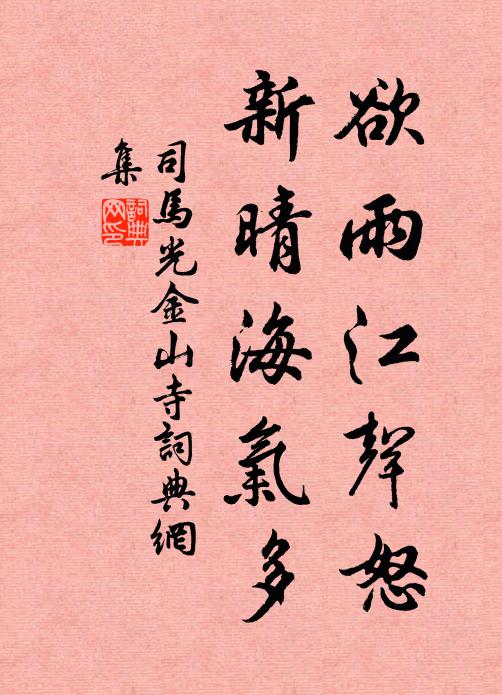 欲雨江聲怒
新晴海氣多
司馬光金山寺詞典網
集
詞典
网印